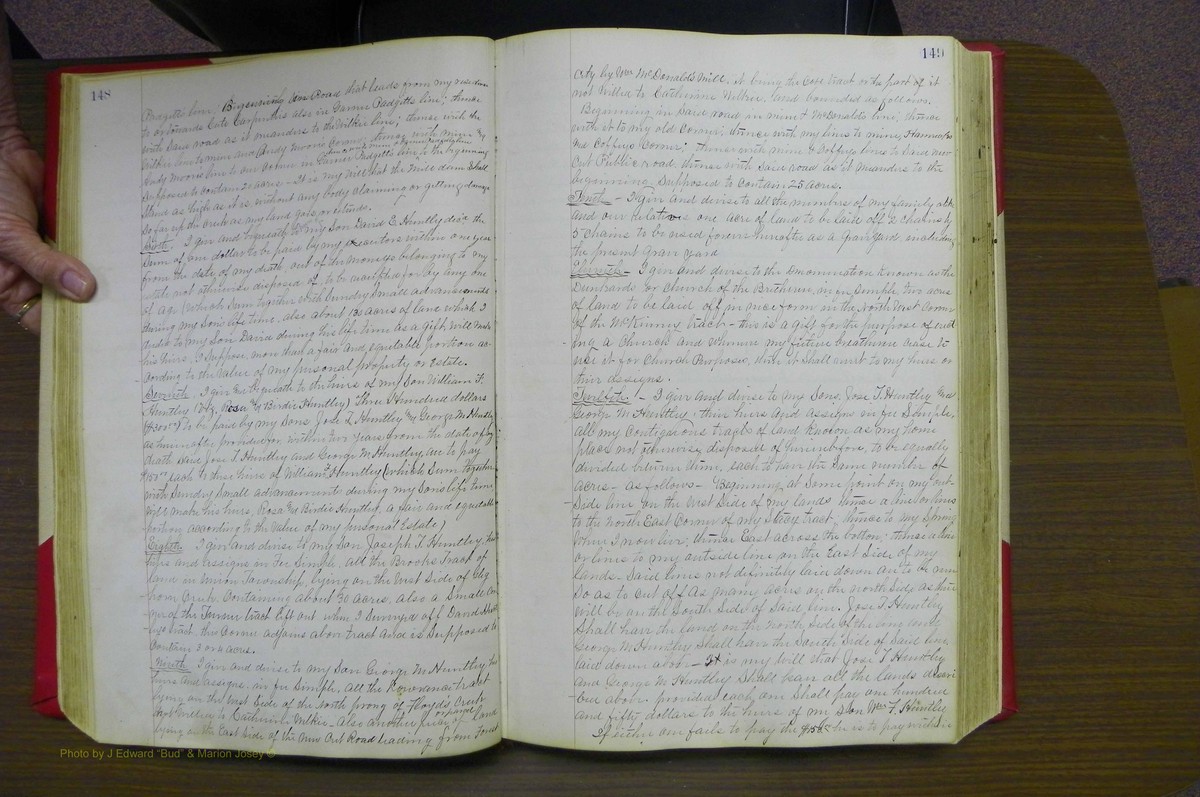 148
Padgetts line. Beginning on Road that leads from my residence
to or towards Cate Carpenters also in Garner Padgetts line; thence
with said road as it meanders to the Wilkie line; thence with the
Wilkie line to mine and Andy Moores corner, thence with mine &
Andy Moores line to our corner in Garner Padgetts line to the beginning
supposed to contain 20 acres - It is my will that the Mill dam shall
stand as high as it is without any body claiming or getting damage
so far up the creek as my land goes or extends.
Sixth. I give and bequeath to my Son David E. Huntley dec'd the
sum of one dollar to be paid by my executors within one year
from the date of my death out of the moneys belonging to my
estate not otherwise disposed of, to be waited for by long one
of age (which sum together with sundry small advancements
during my Sons life time, also about 130 acres of land which I
deeded to my Son David during his life time as a gift, will make
his heirs, I suppose, more than a fair and equitable portion ac-
cording to the value of my personal property or Estate.
Seventh. I give & bequeath to the heirs of my Son William F.
Huntley (viz, Rosa & Birdie Huntley) Three Hundred dollars
($300.00) to be paid by my Sons Jose T. Huntley & George M Huntley
as hereinafter provided for, within two years from the date of my
death said Jose T. Huntley and George M Huntley are to pay
$150.00 each to these heirs of William F. Huntley (which sum together
with sundry small advancements during my Sons life time,
will make his heirs, Rosa & Birdie Huntley, a fair and equitable
portion according to the value of my personal Estate)
Eighth. I give and devise to my Son Joseph T. Huntley, his
heirs and assigns in fee simple, all the Brooks Tract of
land in Union Township, lying on the West side of
Creek, containing about 30 acres, also a small cor-
ner of the Turner tract left out when I surveyed off David
tract, the corner adjoins above tract and is supposed to
contain 3 or 4 acres.
Ninth. I give and devise to my Son George M Huntley, his
heirs and assigns, in fee simple, all the tract
lying on the West side of the north prong of Floyds Creek
except given to Catherine Wilkie - Also another piece or parcel of land
lying on the East side of the New Cut Road leading from Forest
149
City by Wm McDonalds Mill, it being the Cope tract or the part of it
not Willed to Catherine Wilkie, and bounded as follows.
Beginning in said road in mine & McDonalds line, thence
with it to my old corner; thence with my lines to mine, Hannon
McCoffeys corner; thence with mine & Coffeys lines to said new
Cut Public road, thence with said road as it meanders to the
beginning, supposed to contain 25 acres.
Tenth - I give and devise to all the members of my family all
and our Relatives one acre of land to be laid off 2 chains by
5 chains to be used forever hereafter as a Grave Yard, including
the present Grave Yard
Eleventh - I give and devise to the Denomination known as the
Dunkards or Church of the Bretheren, in fee simple two acres
of land to be laid off in nice form in the North West Corner
of the McKinney tract - this is a gift for the purpose of erect-
ing a Church and whenever my future breathren cease to
use it for Church Purposes, then it shall revert to my heirs or
their assigns.
Twelfth! - I give and devise to my Sons, Jose T. Huntley and
George M Huntley, their heirs and assigns in fee simple,
all my contiguous tracts of land known as my home
place not otherwise disposed of heretofore, to be equally
divided between them, each to have the same number of
acres - as follows - Beginning at some point on my out-
side line on the West side of my lands thence a line or lines
to the North East Corner of my Stacy tract, thence to my Spring
where I now live; thence East across the bottom; thence a line
or lines to my outside line on the East side of my
lands. Said lines not definitely laid down are to be run
so as to cut off as many acres on the north side as there
will be on the South side of said line. Jose T. Huntley
shall have the land on the North side of the line and
George M Huntley shall have the South side of said line
laid down above - It is my will that Jose T. Huntley
and George M Huntley shall have all the lands describ-
ed above, provided each one shall pay one hundred
and fifty dollars to the heirs of my Son Wm F. Huntley
If either one fails to pay the $150.00 he is to pay within
Photo by J Edward "Bud" & Marion Josey ©